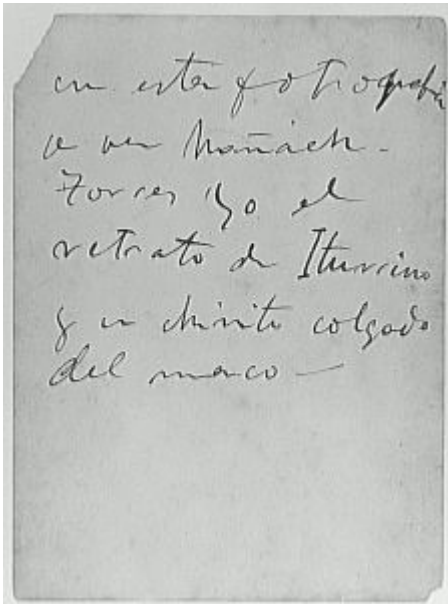 en esta fotografia
se ven Mañach -
Torres yo el
retrato de Iturrino
y un chinito colgado
del marco —